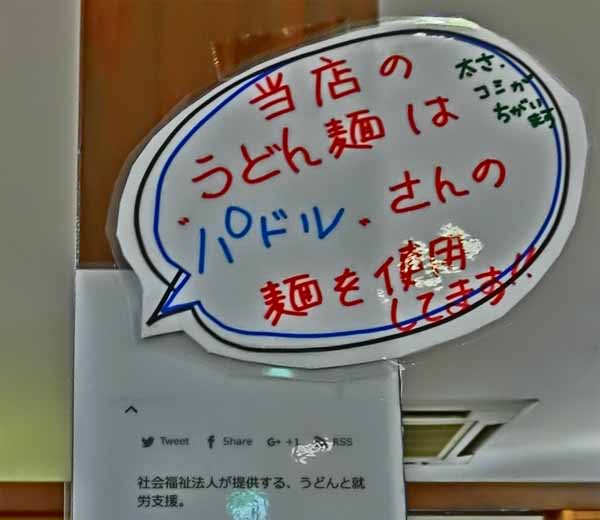 当店の
うどん麺は
"パドル"さんの
麺を使用
してます!!
太さ、
コシが
ちがい
ます
Tweet Share G+ +1 RSS
社会福祉法人が提供する、うどんと就
労支援。